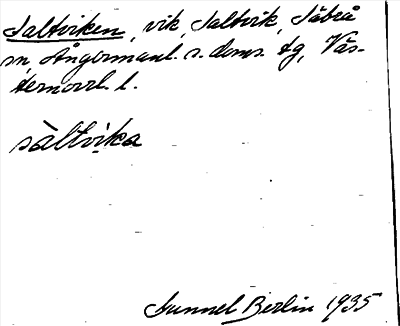 Saltviken, vik, Saltvik, Säbrå
sn, Ångermanl. s. doms. tg, Väs-
ternorrl. l.
sàltvika
Gunnel Berlin 1935